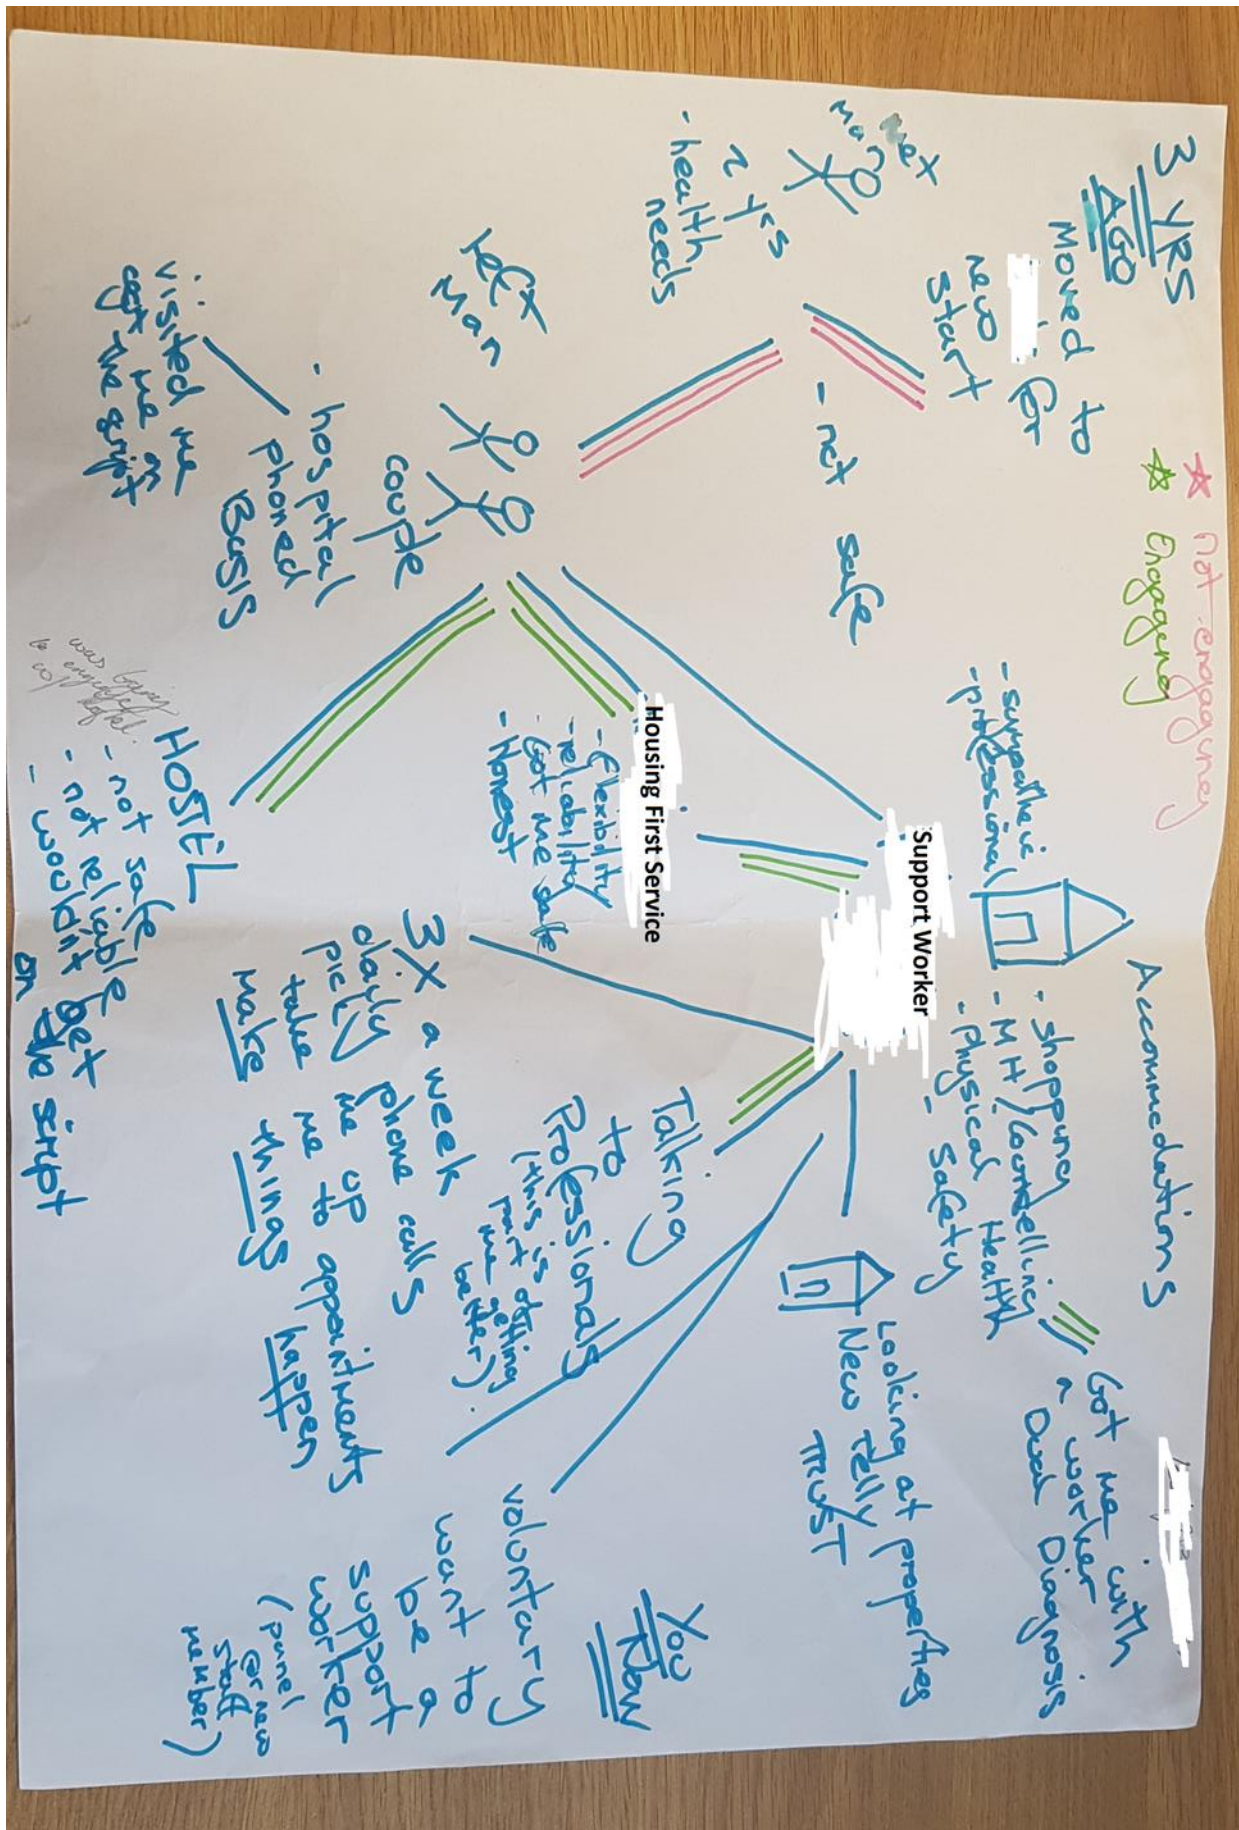 3 YRS
AGO
Moved to
for
new
start
☆ not-engaging
☆ Engaging
Man
2 yrs
- health
needs
- not safe
Man
couple
- hospital
phoned
BASIS
visited me
got me on
the script
HOSTEL
- not safe
- not reliable
- wouldn't get
on the script
was trying
to engage
Housing First Service
- flexibility
- reliability
- Got me safe
- Honest
Support Worker
- sympathetic
- professional
Accommodations
- shopping
- MH/Counselling
- physical Health
- safety
Got me with
a worker
Dual Diagnosis
Looking at properties
New Telly
TRUST
Talking
to
Professionals
(this is
part of getting
me better).
3x a week
daily phone calls
pick me up
take me to appointments
Make things happen
You
Now
voluntary
want to
be a
support
worker
(panel
for new
staff
member)